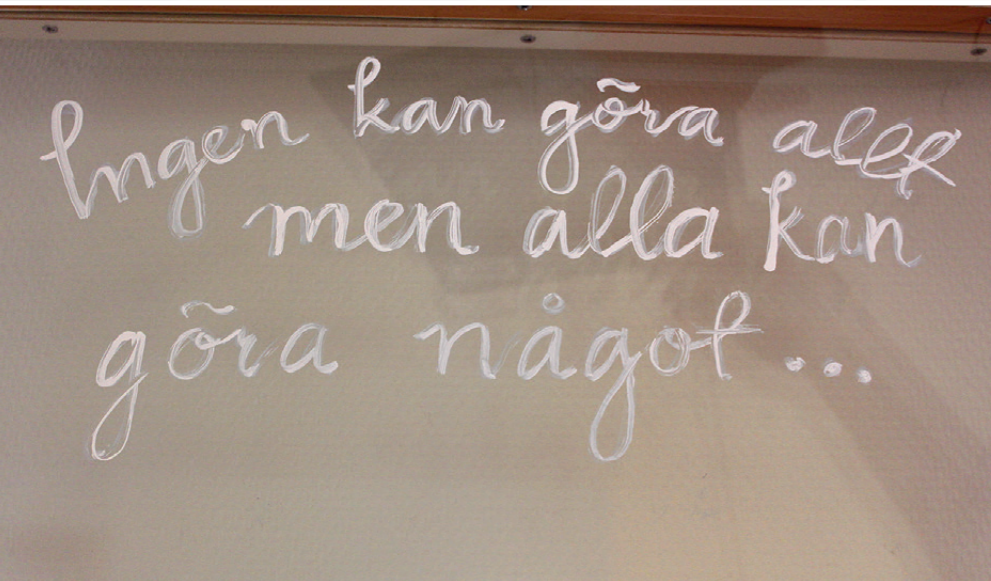 Ingen kan göra allt
men alla kan
göra något...